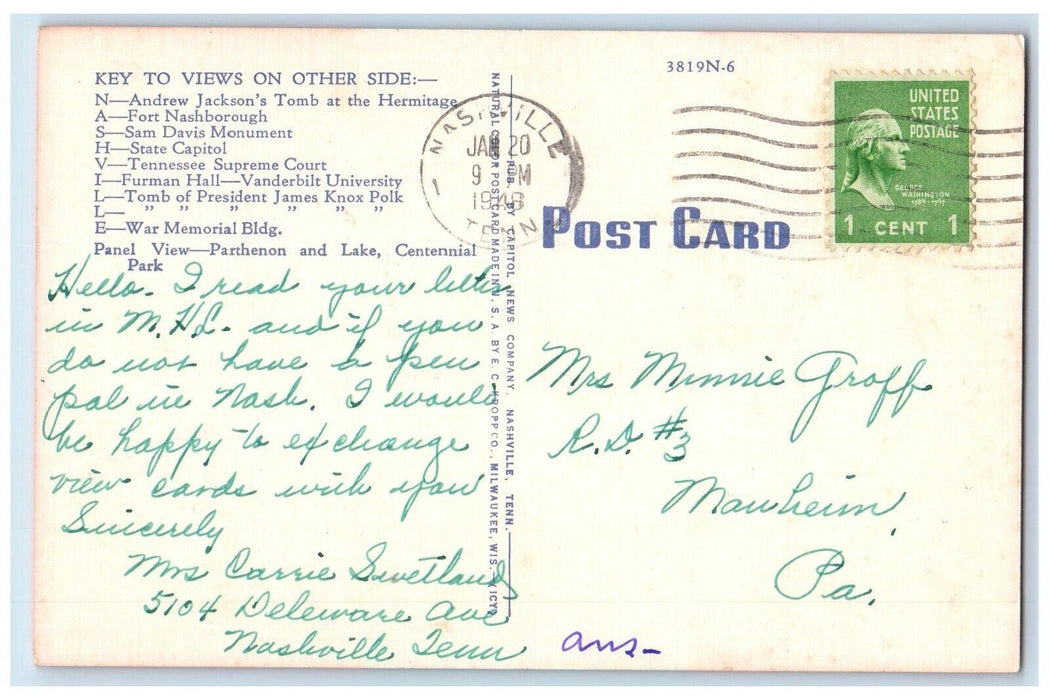 KEY TO VIEWS ON OTHER SIDE:—
N—Andrew Jackson's Tomb at the Hermitage
A—Fort Nashborough
S—Sam Davis Monument
H—State Capitol
V—Tennessee Supreme Court
I—Furman Hall—Vanderbilt University
L—Tomb of President James Knox Polk
L— " " " " " "
E—War Memorial Bldg.
Panel View—Parthenon and Lake, Centennial
Park
Hello. I read your letter
in M.H.L. and if you
do not have a pen
pal in Nash. I would
be happy to exchange
view cards with you
Sincerely
Mrs Carrie Swetland
5104 Deleware Ave
Nashville Tenn
NATURAL COLOR POST CARD MADE IN U. S. A. BY E. C. KROPP CO., MILWAUKEE, WIS.
PUB. BY CAPITOL NEWS COMPANY, NASHVILLE, TENN.
NASHVILLE
JAN 20
9 PM
TENN.
3819N-6
UNITED
STATES
POSTAGE
GEORGE
WASHINGTON
1789-1797
1 CENT 1
POST CARD
Mrs Minnie Groff
R.D. #3
Manheim,
Pa.
ans-